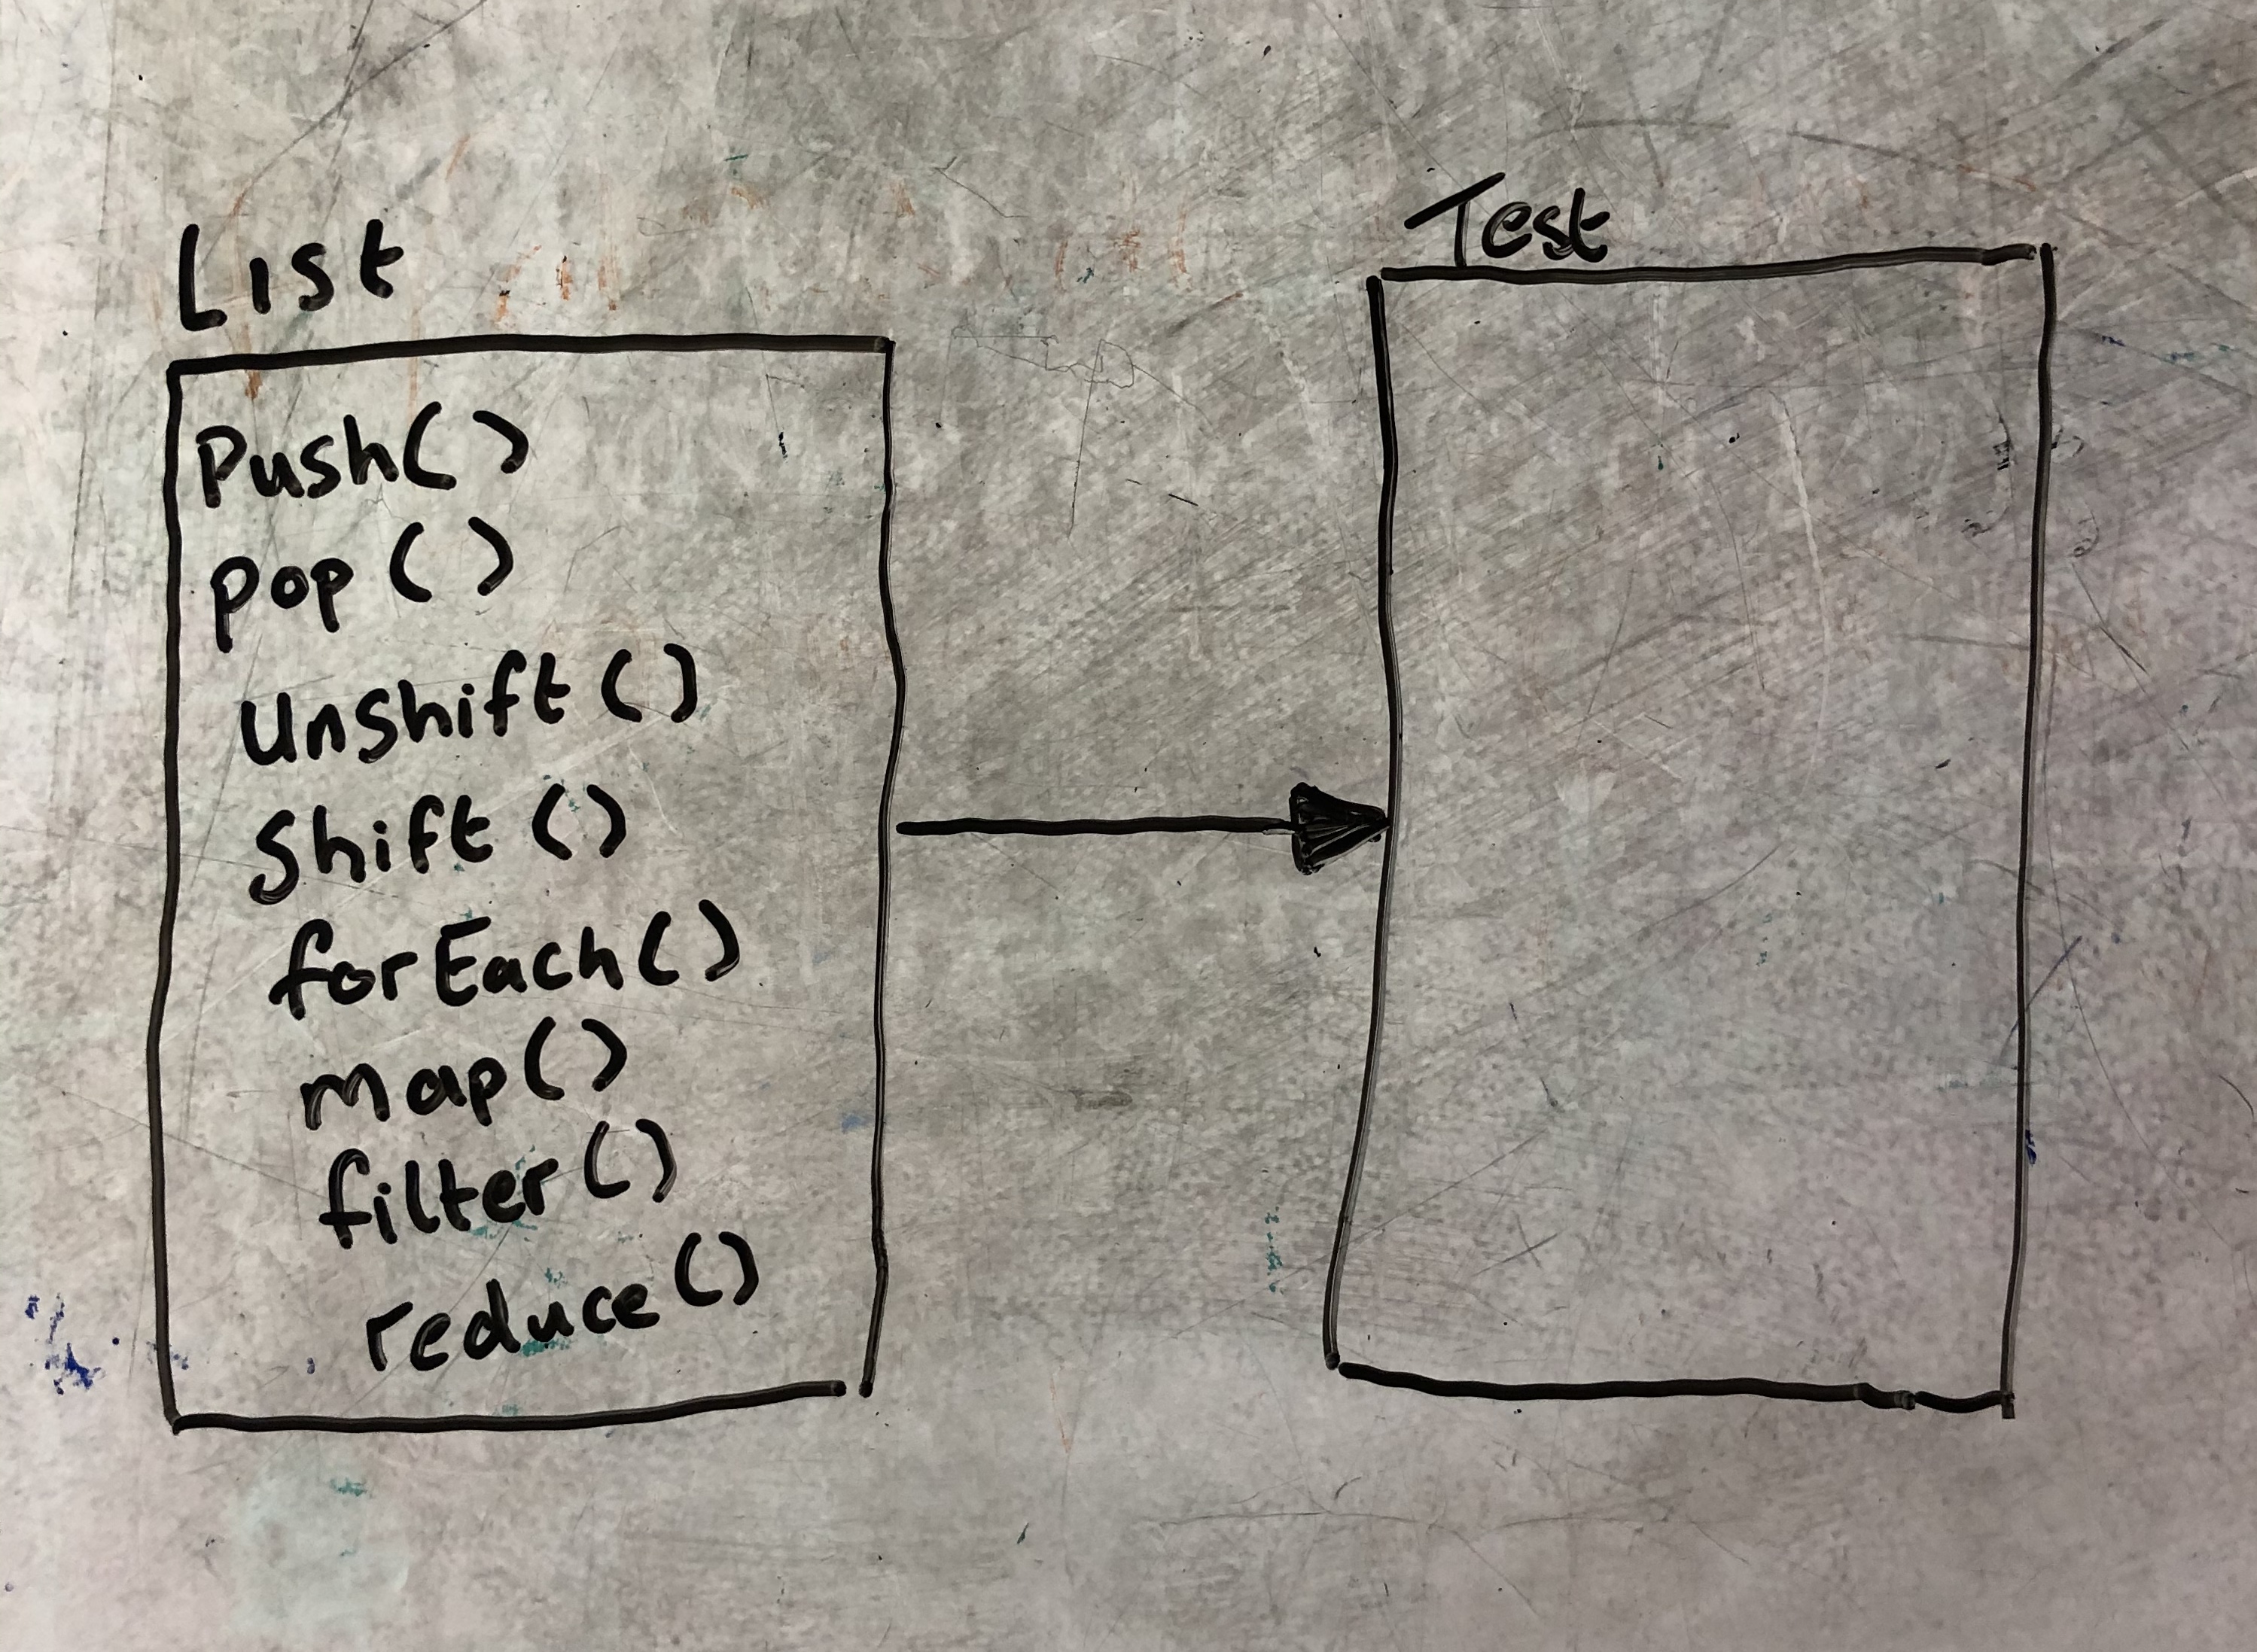 List
Push()
pop()
unshift()
shift()
forEach()
map()
filter()
reduce()
Test